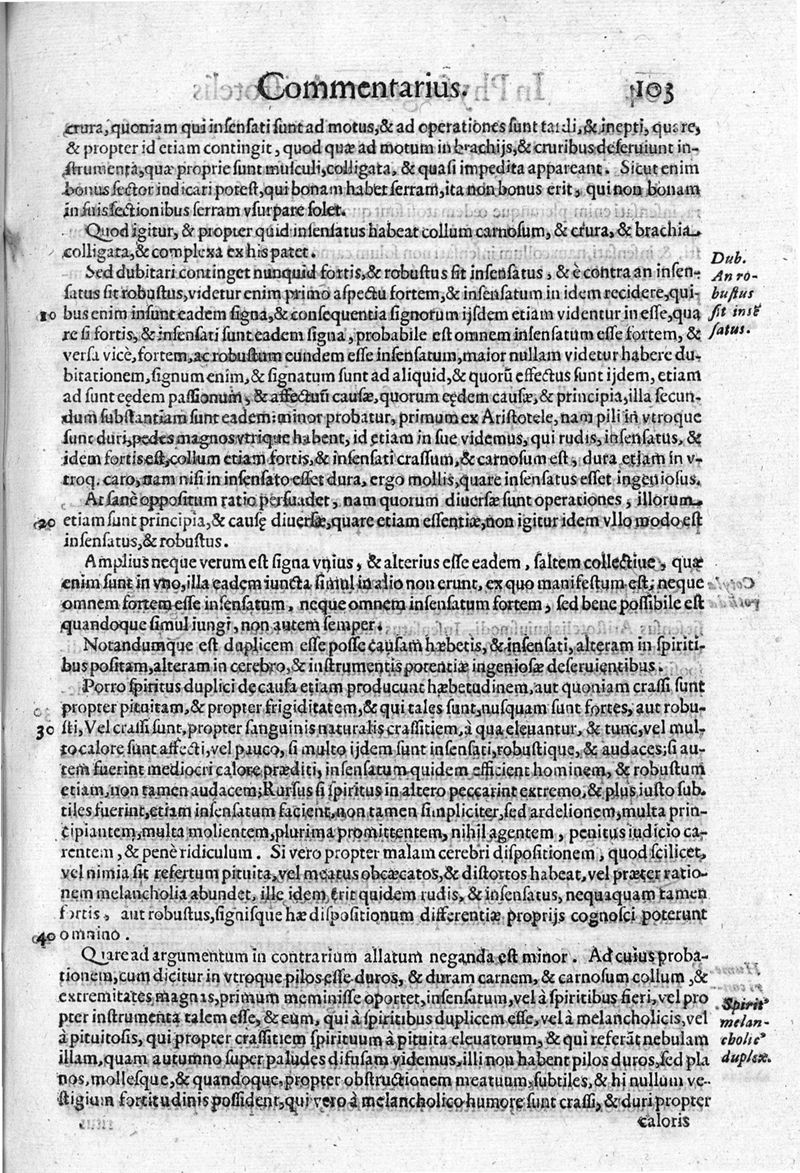 Commentarius. 103
crura, quoniam qui insensati sunt ad motus, & ad operationes sunt tardi, & inepti, quare,
& propter id etiam contingit, quod quæ ad motum in brachijs, & cruribus deseruiunt in-
strumenta, quæ proprie sunt musculi, colligata, & quasi impedita appareant. Sicut enim
bonus sector iudicari potest, qui bonam habet serram, ita non bonus erit, qui non bonam
in suis sectionibus serram vsurpare solet.
Quod igitur, & propter quid insensatus habeat collum carnosum, & crura, & brachia
colligata, & complexa ex his patet.
Sed dubitari continget nunquid fortis, & robustus sit insensatus, & è contra an insen-
satus sit robustus, videtur enim primo aspectu fortem, & insensatum in idem recidere, qui-
10 bus enim insunt eadem signa, & consequentia signorum ijsdem etiam videntur in esse, qua
re si fortis, & insensati sunt eadem signa, probabile est omnem insensatum esse fortem, &
versa vicè, fortem, ac robustum eundem esse insensatum, maior nullam videtur habere du-
bitationem, signum enim, & signatum sunt ad aliquid, & quorũ effectus sunt ijdem, etiam
ad sunt eędem passionum, & affectuũ causæ, quorum eędem causæ, & principia, illa secun-
dum substantiam sunt eadem: minor probatur, primum ex Aristotele, nam pili in vtroque
sunt duri, pedes magnos vtrique habent, id etiam in sue videmus, qui rudis, insensatus, &
idem fortis est, collum etiam fortis, & insensati crassum, & carnosum est, dura etiam in v-
troq. caro, nam nisi in insensato esset dura, ergo mollis, quare insensatus esset ingeniosus.
At sanè oppositum ratio persuadet, nam quorum diuersæ sunt operationes, illorum
20 etiam sunt principia, & causę diuersæ, quare etiam essentiæ, non igitur idem vllo modo est
insensatus, & robustus.
Amplius neque verum est signa vnius, & alterius esse eadem, saltem collectiue, quæ
enim sunt in vno, illa eadem iuncta simul in alio non erunt, ex quo manifestum est, neque
omnem fortem esse insensatum, neque omnem insensatum fortem, sed bene possibile est
quandoque simul iungi, non autem semper.
Notandumque est duplicem esse posse causam hæbetis, & insensati, alteram in spiriti-
bus positam, alteram in cerebro, & instrumentis potentiæ ingeniosæ deseruientibus.
Porro spiritus duplici de causa etiam producunt hæbetudinem, aut quoniam crassi sunt
propter pituitam, & propter frigiditatem, & qui tales sunt, nusquam sunt fortes, aut robu-
30 sti, Vel crassi sunt, propter sanguinis naturalis crassitiem, à qua eleuantur, & tunc, vel mul-
to calore sunt affecti, vel pauco, si multo ijdem sunt insensati, robustique, & audaces; si au-
tem fuerint mediocri calore præditi, insensatum quidem efficient hominem, & robustum
etiam, non tamen audacem; Rursus si spiritus in altero peccarint extremo, & plus iusto sub-
tiles fuerint, etiam insensatum facient, non tamen simpliciter, sed ardelionem, multa prin-
cipiantem, multa molientem, plurima promittentem, nihil agentem, penitus iudicio ca-
rentem, & penè ridiculum. Si vero propter malam cerebri dispositionem, quod scilicet,
vel nimia sit refertum pituita, vel meatus obcæcatos, & distortos habeat, vel præter ratio-
nem melancholia abundet, ille idem erit quidem rudis, & insensatus, nequaquam tamen
fortis, aut robustus, signisque hæ dispositionum differentiæ proprijs cognosci poterunt
40 omnino.
Quare ad argumentum in contrarium allatum neganda est minor. Ad cuius proba-
tionem, cum dicitur in vtroque pilos esse duros, & duram carnem, & carnosum collum, &
extremitates magnas, primum meminisse oportet, insensatum, vel à spiritibus fieri, vel pro
pter instrumenta talem esse, & eum, qui à spiritibus duplicem esse, vel à melancholicis, vel
à pituitosis, qui propter crassitiem spirituum à pituita eleuatorum, & qui referãt nebulam
illam, quam autumno super paludes difusam videmus, illi non habent pilos duros, sed pla
nos, mollesque, & quandoque, propter obstructionem meatuum, subtiles, & hi nullum ve-
stigium fortitudinis possident, qui vero à melancholico humore sunt crassi, & duri propter
caloris
Dub.
An ro-
bustus
sit insẽ
satus.
Spirit'
melan-
cholic'
duplex.